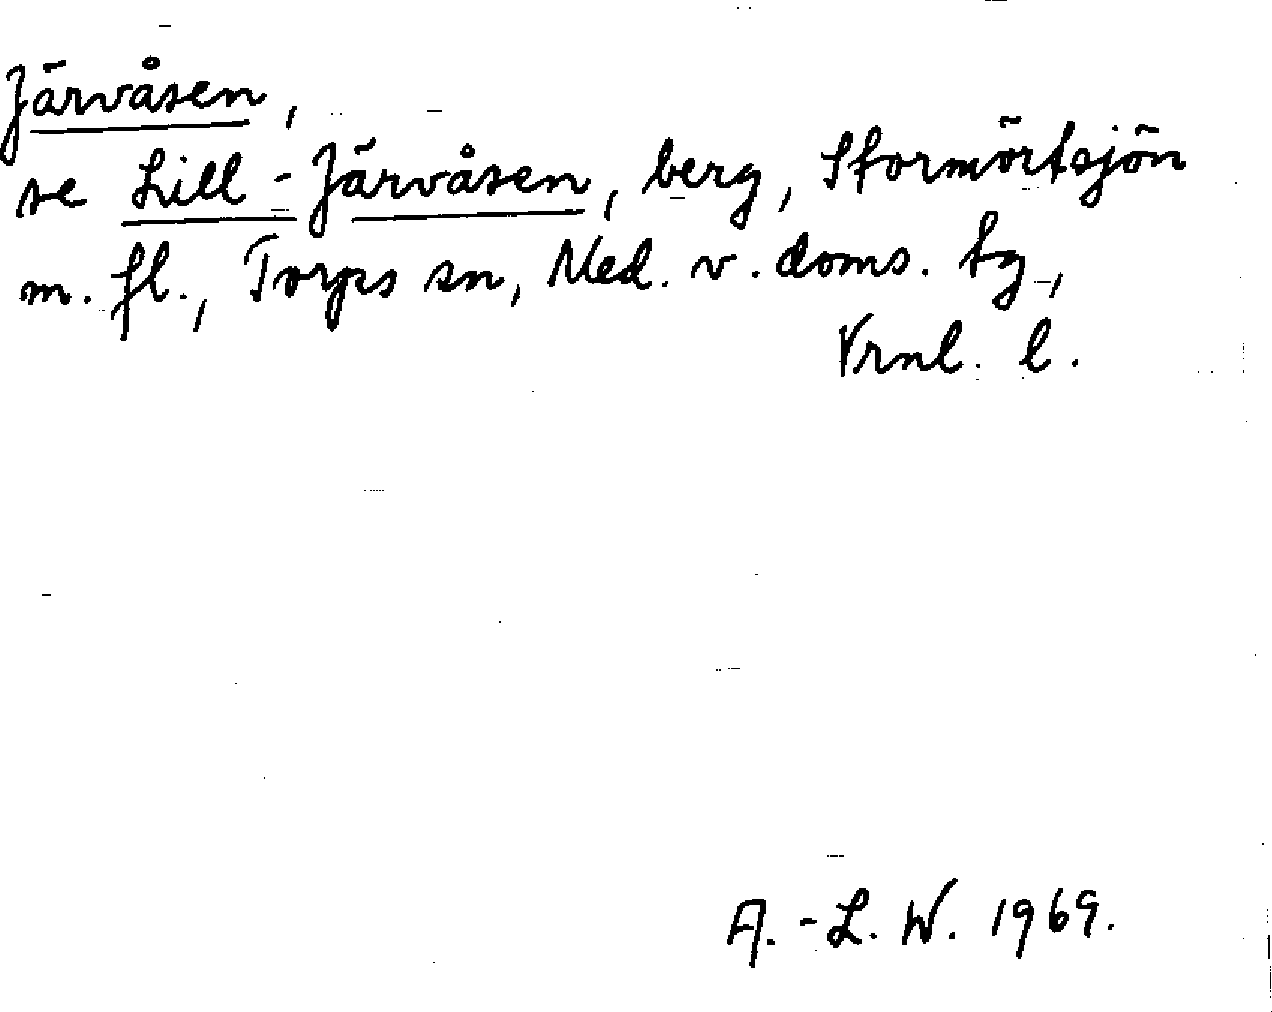 Järvåsen,
se Lill-Järvåsen, berg, Stormörtsjön
m. fl., Torps sn, Med. v. doms. tg,
Vrnl. l.
A.-L. W. 1969.